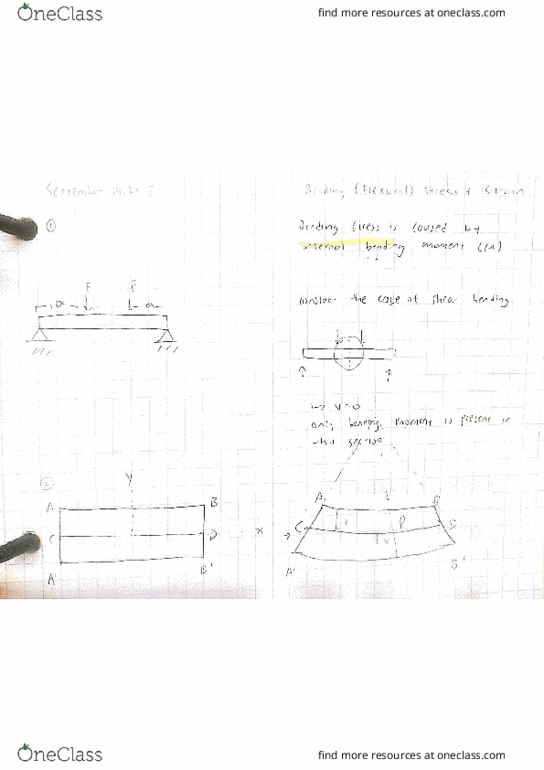 OneClass
find more resources at oneclass.com
September
Bending (flexural) stress & strain
①
Bending stress is caused by
internal bending moment (M)
P P
a a
consider the case of bending
→ V=0
only bending moment is present in
this section
②
Y
A B
C D x
A' B'
A B
C ρ D
y
A' B'
OneClass
find more resources at oneclass.com